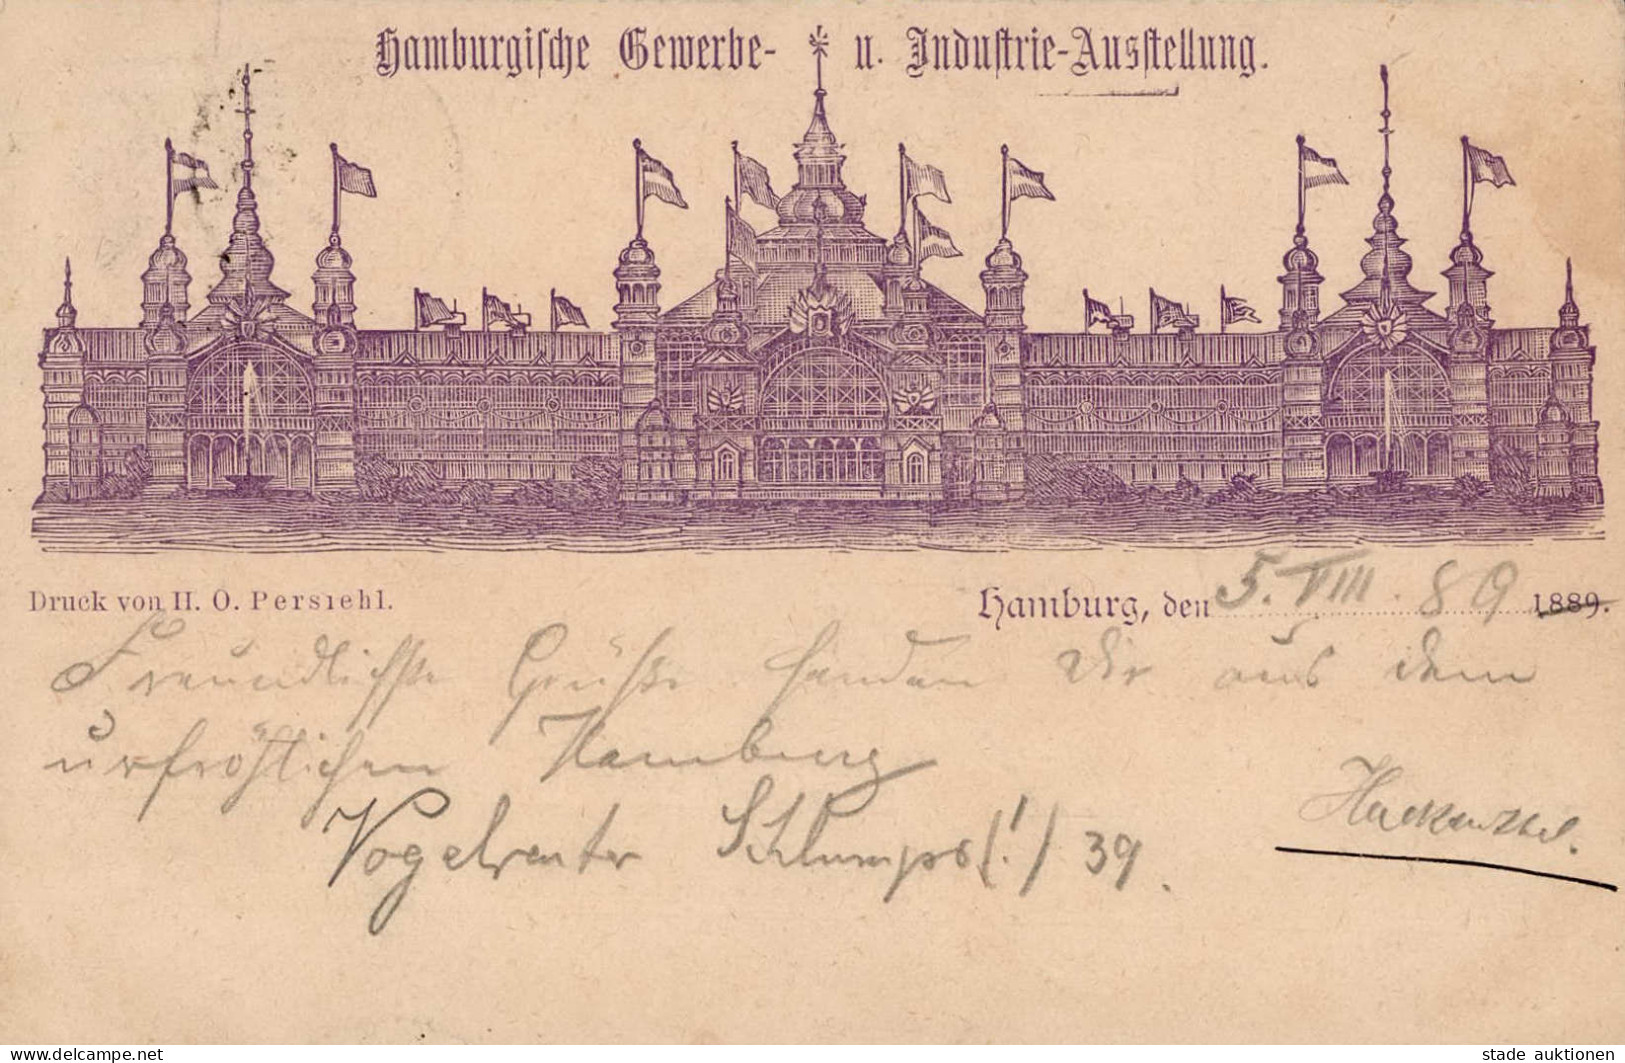 Hamburgische Gewerbe- u. Industrie-Ausstellung.
Druck von H. O. Persiehl.
Hamburg, den 5. VIII. 89 1889.
Freundlichste Grüße senden Dir aus dem
urfröhlichen Hamburg
Vogelreuter Schlumps (!) 39.
delcampe.net
stade auktionen